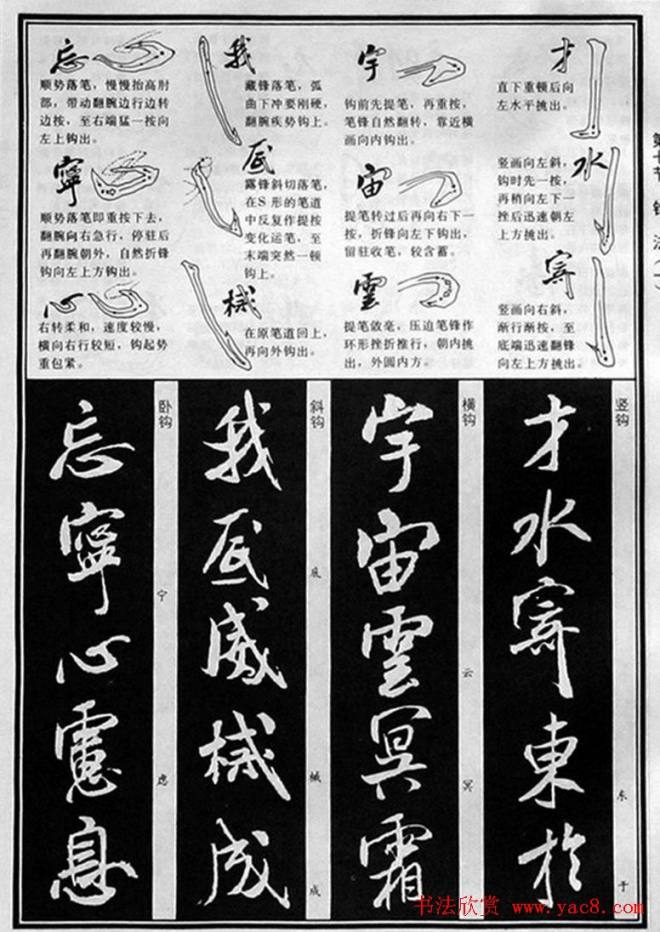 才
直下重顿后向
左水平挑出。
水
竖画向左斜，
钩时先一按，
再稍向左下一
挫后迅速朝左
上方挑出。
寄
竖画向右斜，
渐行渐按，至
底端迅速翻锋
向左上方挑出。
宇
钩前先提笔，再重按，
笔锋自然翻转，靠近横
画向内钩出。
宙
提笔转过后再向右下一
按，折锋向左下钩出，
留驻收笔，较含蓄。
雲
提笔敛毫，压边笔锋作
环形挫折推行，朝内挑
出，外圆内方。
我
藏锋落笔，弧
曲下冲要刚硬，
翻腕疾势钩上。
底
露锋斜切落笔，
在S形的笔道
中反复作提按
变化运笔，至
末端突然一顿
钩上。
械
在原笔道回上，
再向外钩出。
忘
顺势落笔，慢慢抬高肘
部，带动翻腕边行边转
边按，至右端猛一按向
左上钩出。
寧
顺势落笔即重按下去，
翻腕向右急行，停驻后
再翻腕朝外，自然折锋
钩向左上方钩出。
心
右转柔和，速度较慢，
横向右行较短，钩起势
重包紧。
竖钩 东 于
才水寄東於
横钩 云 冥
宇宙雲冥霜
斜钩 底 械 成
我底威械成
卧钩 宁 虑
忘寧心慮息
书法欣赏 www.yac8.com